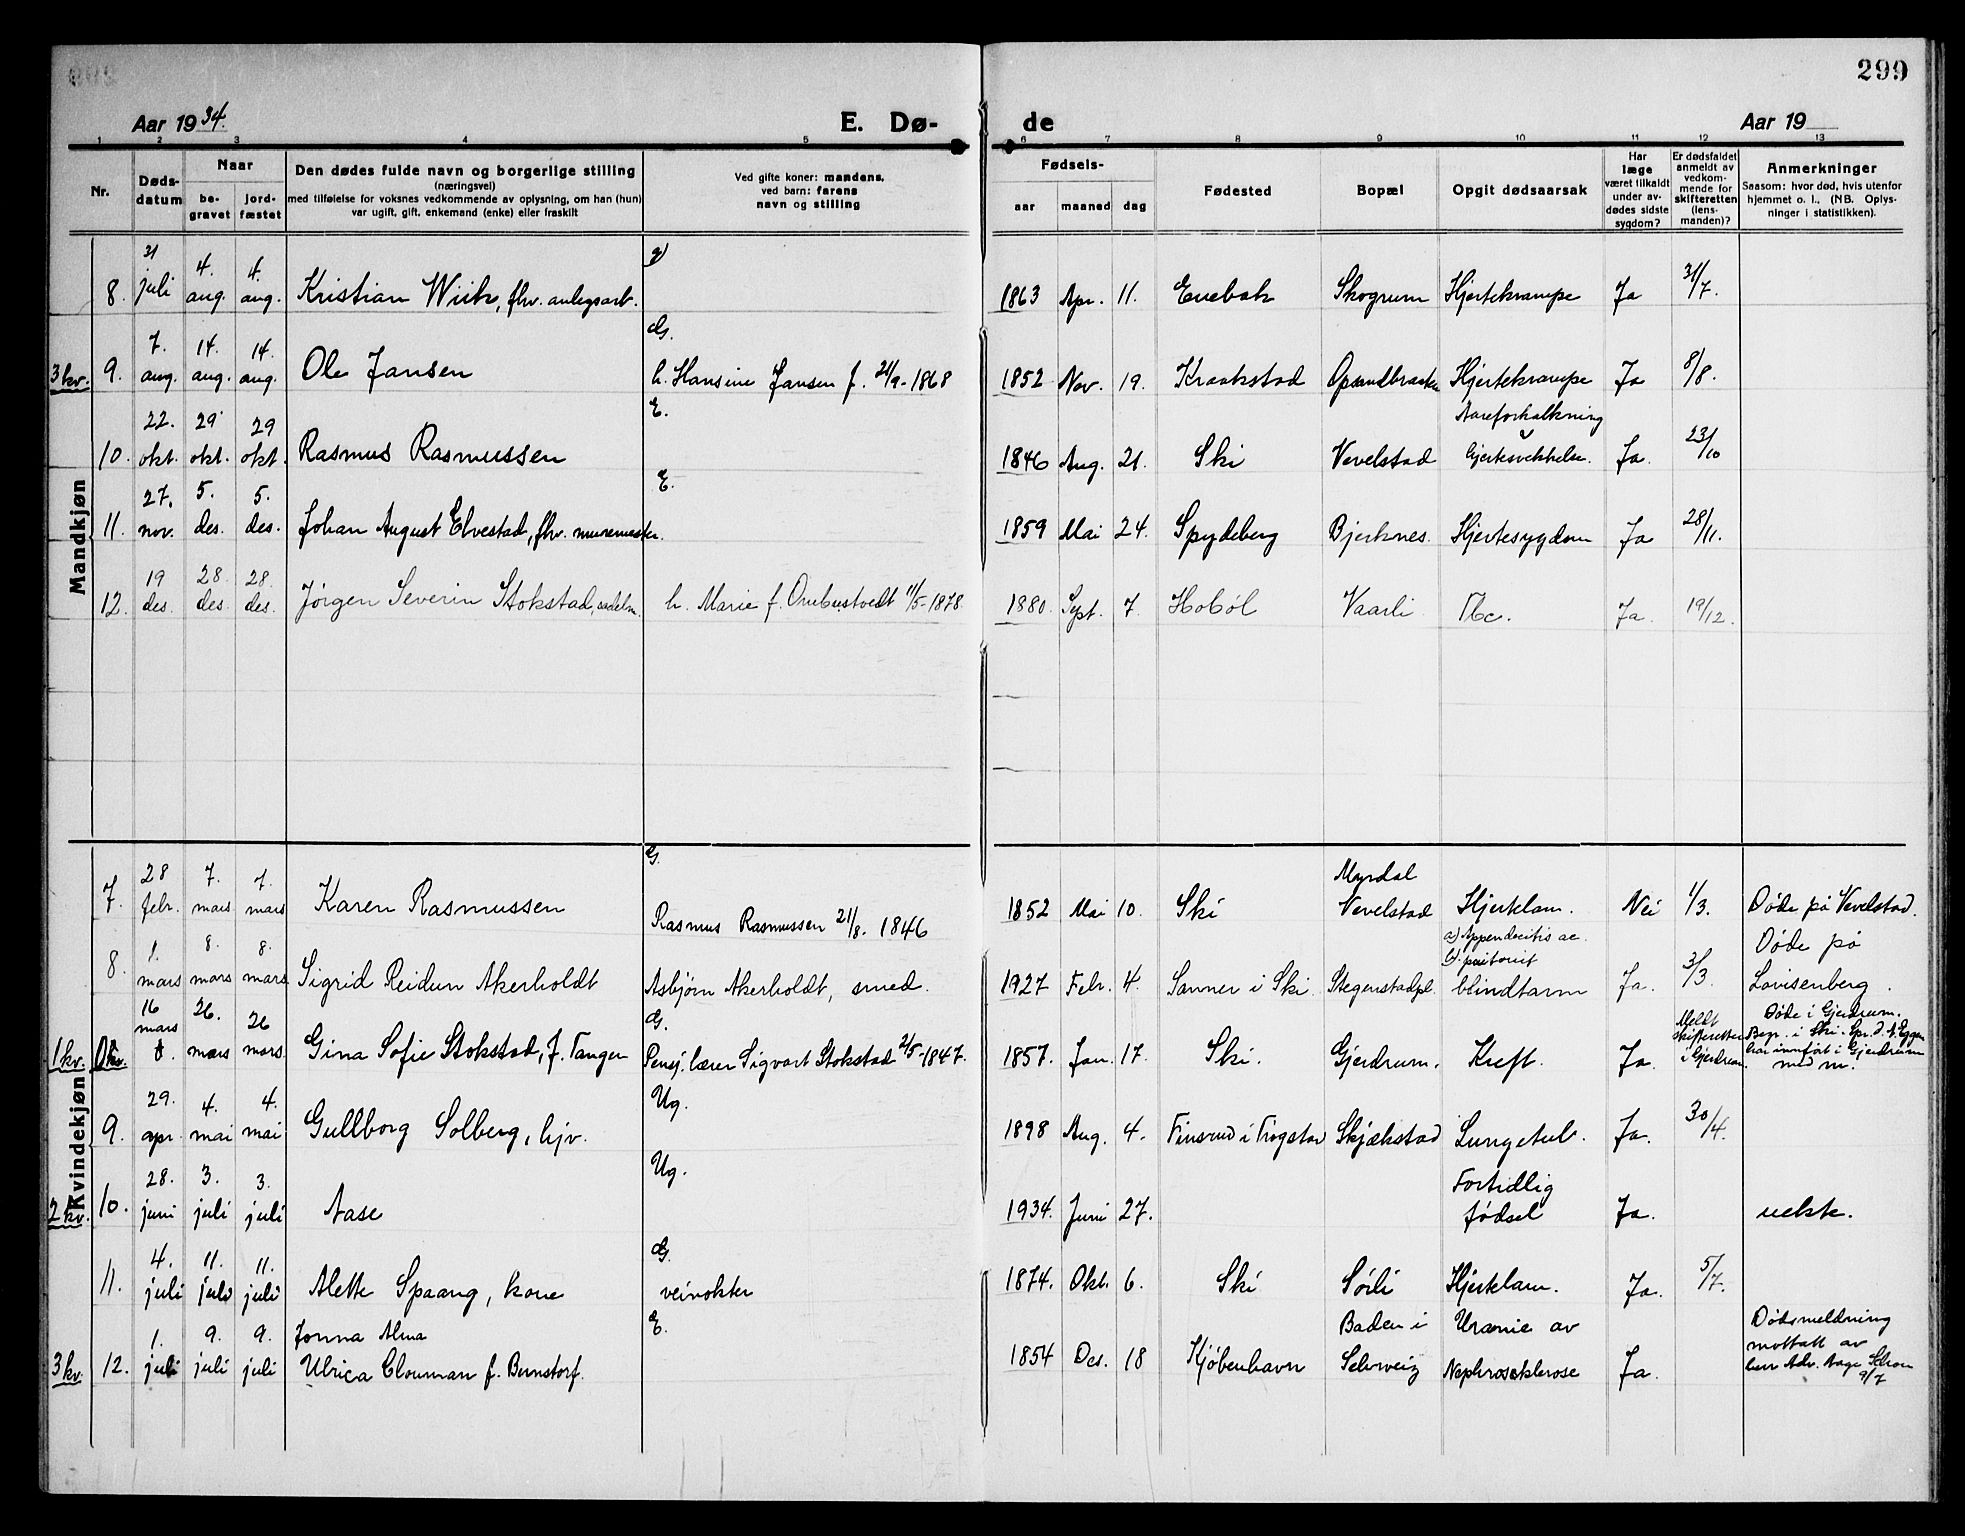 299
Aar 1934.
E. Dø-
de
Aar 19
1 2 3 4 5 6 7 8 9 10 11 12 13
Nr.
Døds-
datum
Naar
be-
gravet
jord-
fæstet
Den dødes fulde navn og borgerlige stilling
(næringsvei)
med tilføielse for voksnes vedkommende av oplysning, om han (hun)
var ugift, gift, enkemand (enke) eller fraskilt
Ved gifte koner: mandens,
ved barn: farens
navn og stilling
Fødsels-
aar maaned dag
Fødested
Bopæl
Opgit dødsaarsak
Har
læge
været tilkaldt
under av-
dødes sidste
sygdom?
Er dødsfaldet
anmeldt av
vedkom-
mende for
skifteretten
(lens-
manden)?
Anmerkninger
Saasom: hvor død, hvis utenfor
hjemmet o. l., (NB. Oplys-
ninger i statistikken).
Mandkjøn
8. 31 juli 4. aug. 4. aug. Kristian Wiik, fhv. anlegsarb. 1863 Apr. 11. Enebak Skogrum Hjertekrampe Ja 31/7.
3 kv. 9. 7. aug. 14. aug. 14. aug. Ole Jansen G. h. Hansine Jansen f. 21/9-1868 1852 Nov. 19. Kraakstad Hjertekrampe Ja 8/8.
10. 22. okt. 29 okt. 29 okt. Rasmus Rasmussen E. 1846 Aug. 21. Ski Vevelstad Aareforkalkning Hjertesvekkelse. Ja. 23/10
11. 27. nov. 5. des. 5. des. Johan August Elvestad, fhv. muremester. E. 1859 Mai 24. Spydeberg Bjerknes. Hjertesygdom Ja 28/11.
12. 19 des. 28. des. 28. des. Jørgen Severin Stokstad, sadelm. h. Marie f. Ombustvedt 11/5-1878. 1880 Sept. 7. Hobøl Vaarli Tbc. Ja. 19/12.
Kvindekjøn
7. 28 febr. 7. mars 7. mars Karen Rasmussen G. Rasmus Rasmussen 21/8. 1846 1852 Mai 10. Ski Myrdal Vevelstad Hjertelam. Nei 1/3. Døde på Vevelstad.
8. 1. mars 8. mars 8. mars. Sigrid Reidun Akerholdt Asbjørn Akerholdt, smed. 1927 Febr. 4. Sanner i Ski. Stegenstadpl. a) Appendicitis ac. b). peritonit blindtarm Ja. 3/3. Døde på Lovisenberg.
1 kv. 0 kv. 16 mars 26. mars 26 mars. Gina Sofie Stokstad, f. Tanger G. Pensj. lærer Sigvart Stokstad 2/5-1847. 1857. Jan. 17. Ski. Gjerdrum. Kreft. Ja. Meldt skifteretten i Gjerdrum. Døde i Gjerdrum. Begr. i Ski. Spr. d. A. Eggen har innført i Gjerdrum med nr.
9. 29. apr. 4. mai 4. mai Gullborg Solberg, hjv. Ug. 1898 Aug. 4. Finsrud i Trøgstad Skjækstad Lungetub. Ja. 30/4.
2 kv. 10. 28. juni 3. juli 3. juli Aase Ug. 1934. Juni 27. Fortidlig fødsel Ja. uekte.
11. 4. juli 11. juli 11. juli Alette Spaang, kone G. veivokter 1874. Okt. 6. Ski Søili Hjertelam. Ja. 5/7.
3 kv. 12. 1. juli 9. juli 9. juli Jonna Alma Ulrica Clouman f. Bernstorf. E. 1854 Des. 18 Kjøbenhavn Baden i Schweiz Uremie av Nephrosklerose Ja. Dødsmeldning mottatt av herr Adv. Aage 9/7